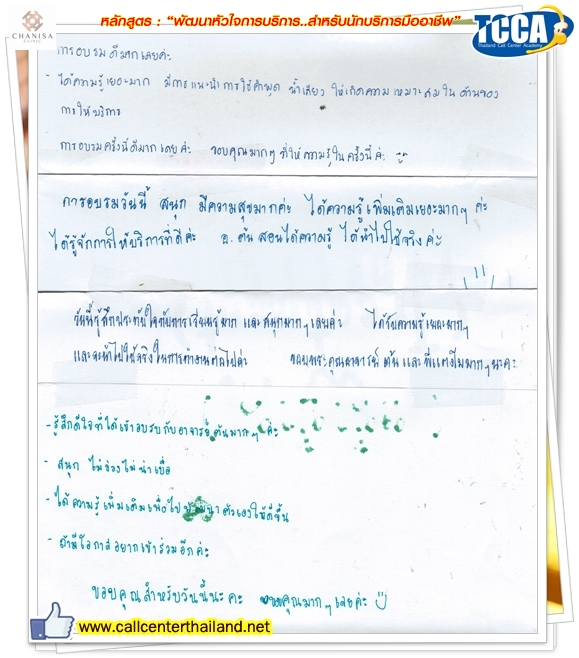 CHANISA
CLINIC
หลักสูตร : “พัฒนาหัวใจการบริการ..สำหรับนักบริการมืออาชีพ”
TCCA
Thailand Call Center Academy
การอบรมดีมากเลยค่ะ
- ได้ความรู้เยอะมาก มีการแนะนำการใช้คำพูด น้ำเสียง ให้เกิดความเหมาะสมในด้านของ
การให้บริการ
การอบรมครั้งนี้ดีมากเลยค่ะ ขอบคุณมากๆ ที่ให้ความรู้ในครั้งนี้ค่ะ
การอบรมวันนี้ สนุก มีความสุขมากค่ะ ได้ความรู้เพิ่มเติมเยอะมากๆ ค่ะ
ได้รู้จักการให้บริการที่ดีค่ะ อ.ต้น สอนได้ความรู้ ได้นำไปใช้จริงค่ะ
วันนี้รู้สึกประทับใจกับการเรียนรู้มาก และสนุกมากๆเลยค่ะ ได้รับความรู้เยอะมากๆ
และจะนำไปใช้จริงในการทำงานต่อไปค่ะ ขอบพระคุณอาจารย์ต้น และพี่แตงโมมากๆนะคะ
- รู้สึกดีใจที่ได้เข้าอบรมกับอาจารย์ต้นมากๆ ค่ะ
- สนุก ไม่ง่วงไม่น่าเบื่อ
- ได้ความรู้เพิ่มเติมเพื่อไปพัฒนาตัวเองให้ดีขึ้น
- ถ้ามีโอกาสอยากเข้าร่วมอีกค่ะ
ขอบคุณสำหรับวันนี้นะคะ ขอบคุณมากๆเลยค่ะ
www.callcenterthailand.net